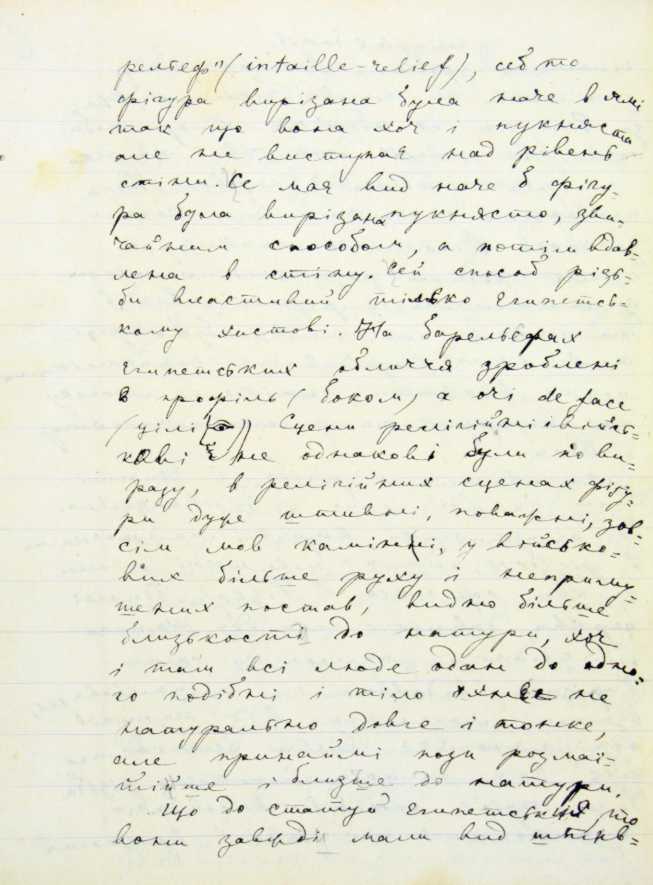 рельеф" (intaille-relief), себ то
фігура вирізана була наче в ямі
так що вона хоч і пукняста
але не виступає над рівень
стіни. Се має вид наче б фігу-
ра була вирізана пукнясто, зви-
чайним способом, а потім вдав-
лена в стіну. Сей способ різь-
би властивий тілько Египетсь-
кому хистові. На барельєфах
Египетських обличчя зроблені
в профіль (боком) а очі de face
(цілі) Сцени релігійні і військ-
кові не однакові були по ви-
разу, в релігійних сценах фігу-
ри дуже штивні, поважні, зов-
сім мов камінні, у військо-
вих більше руху і неприму-
шених постав, видно більше
близькости до натури, хоч
і там всі люде один до одно-
го подібні і тіло їхнє не
натурально довге і тонке,
але принаймі пози розмаї-
тійше і близше до натури.
Що до статуй Египетських то
вони завжди мали вид штив-